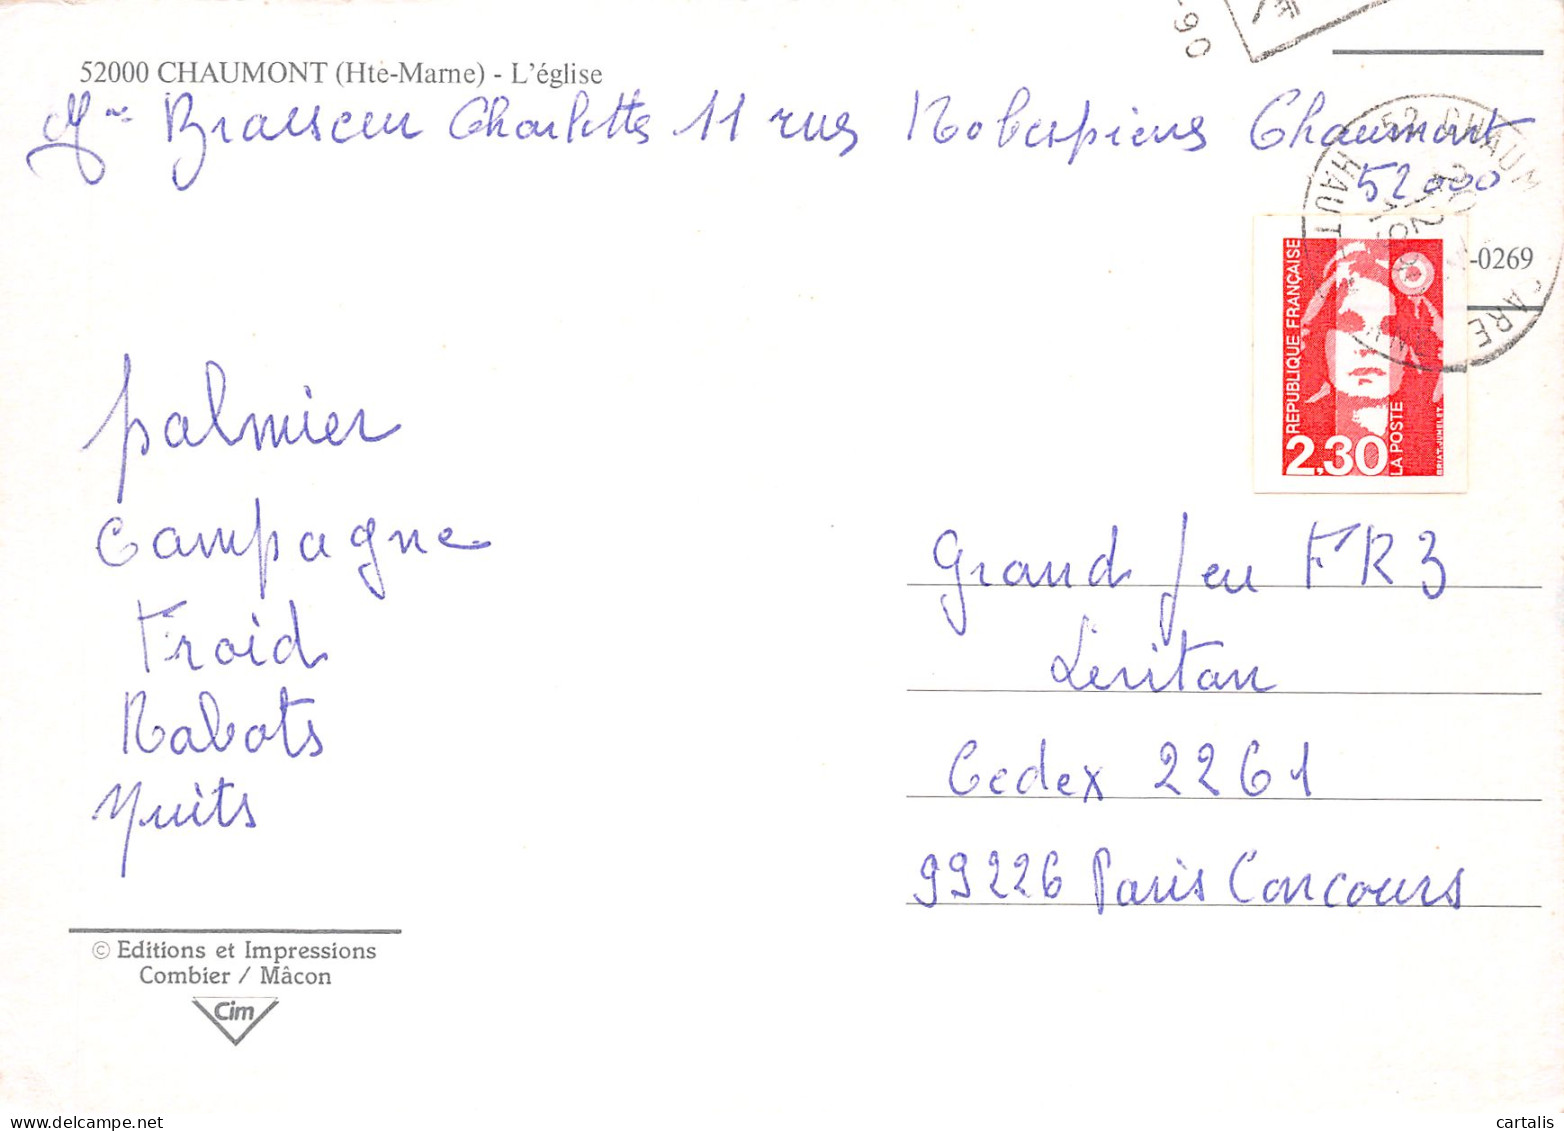 -90
52000 CHAUMONT (Hte-Marne) - L'église
Mme Brasseur Charlotte 11 rue Robespierre Chaumont
52000
52 CHAUM
HAUTE MARNE
REPUBLIQUE FRANÇAISE
2,30
LA POSTE
BRIAT-JUMELET
-0269
palmier
Campagne
Froid
Rabots
Nuits
Grand Jeu FR3
Levitan
Cedex 2261
99226 Paris Concours
© Editions et Impressions
Combier / Mâcon
Cim
cartalis